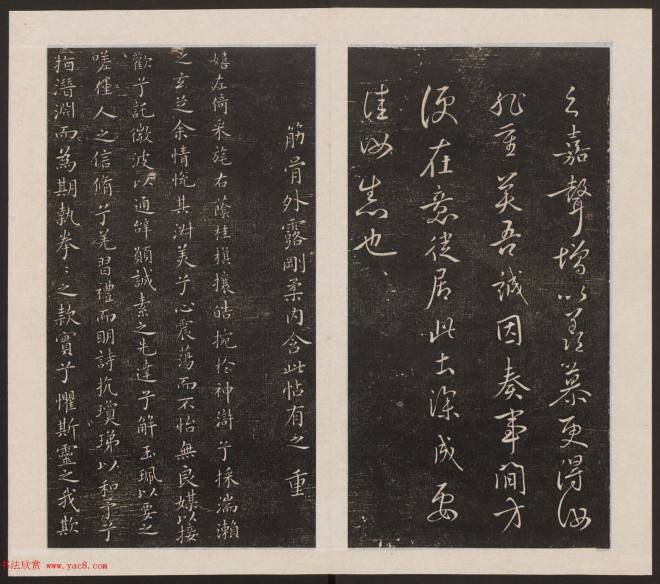 之嘉聲增以羨慕更得汝
至矣吾誠因奏事間方
在意從居此去深成要
佳汝悉也
筋骨外露剛柔內含此帖有之 重
嬉左倚采旄右蔭桂旗攘皓捥於神滸兮採湍瀨
之玄芝余情悅其淑美兮心震蕩而不怡無良媒以接
歡兮託微波以通辭願誠素之先達兮解玉珮以要之
嗟佳人之信脩兮羌習禮而明詩抗瓊珶以和予兮
指潛淵而為期執拳〻之款實兮懼斯靈之我欺
书法欣赏 www.yac8.com